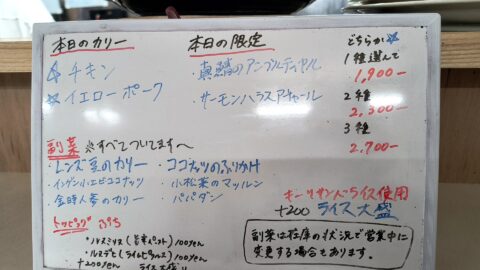 本日のカリー
☆チキン
☆イエローポーク
本日の限定
・真鯖のアンブルティヤル
・サーモンハラスアチャール
どちらか☆
1種選んで
1,900-
2種
2,300-
3種
2,700-
副菜 ※すべてついてます〜
・レンズ豆のカリー
・インゲン小エビココナッツ
・金時人参のカリー
・ココナッツのふりかけ
・小松菜のマッルン
・パパダン
キーリサンバライス使用
+200 ライス大盛
トッピング ぷち
・ルヌミリス(旨辛ペースト) 100yen
・ルヌデヒ(ライムピクルス) 100yen
+200yen ライス大盛り
副菜は在庫の状況で営業中に
変更する場合あります。